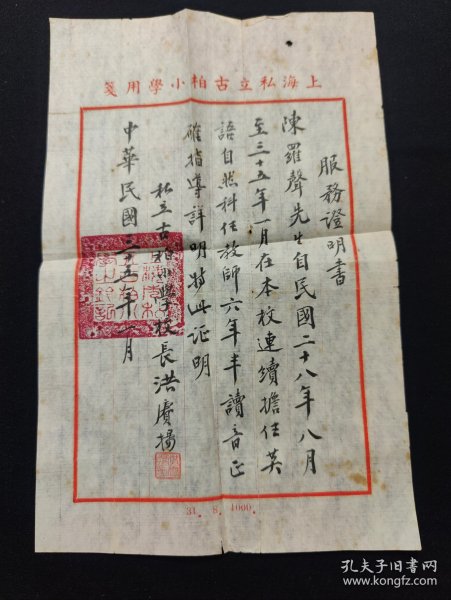 箋用學小柏古立私海上
服務證明書
陳羅聲先生自民國二十八年八月
至三十五年一月在本校連續擔任英
語自然科任教師六年半讀音正
確指導詳明特此证明
私立古柏小學校長洪賡揚
中華民國三十五年十一月
31. 8. 1000.
孔夫子旧书网
www.kongfz.com